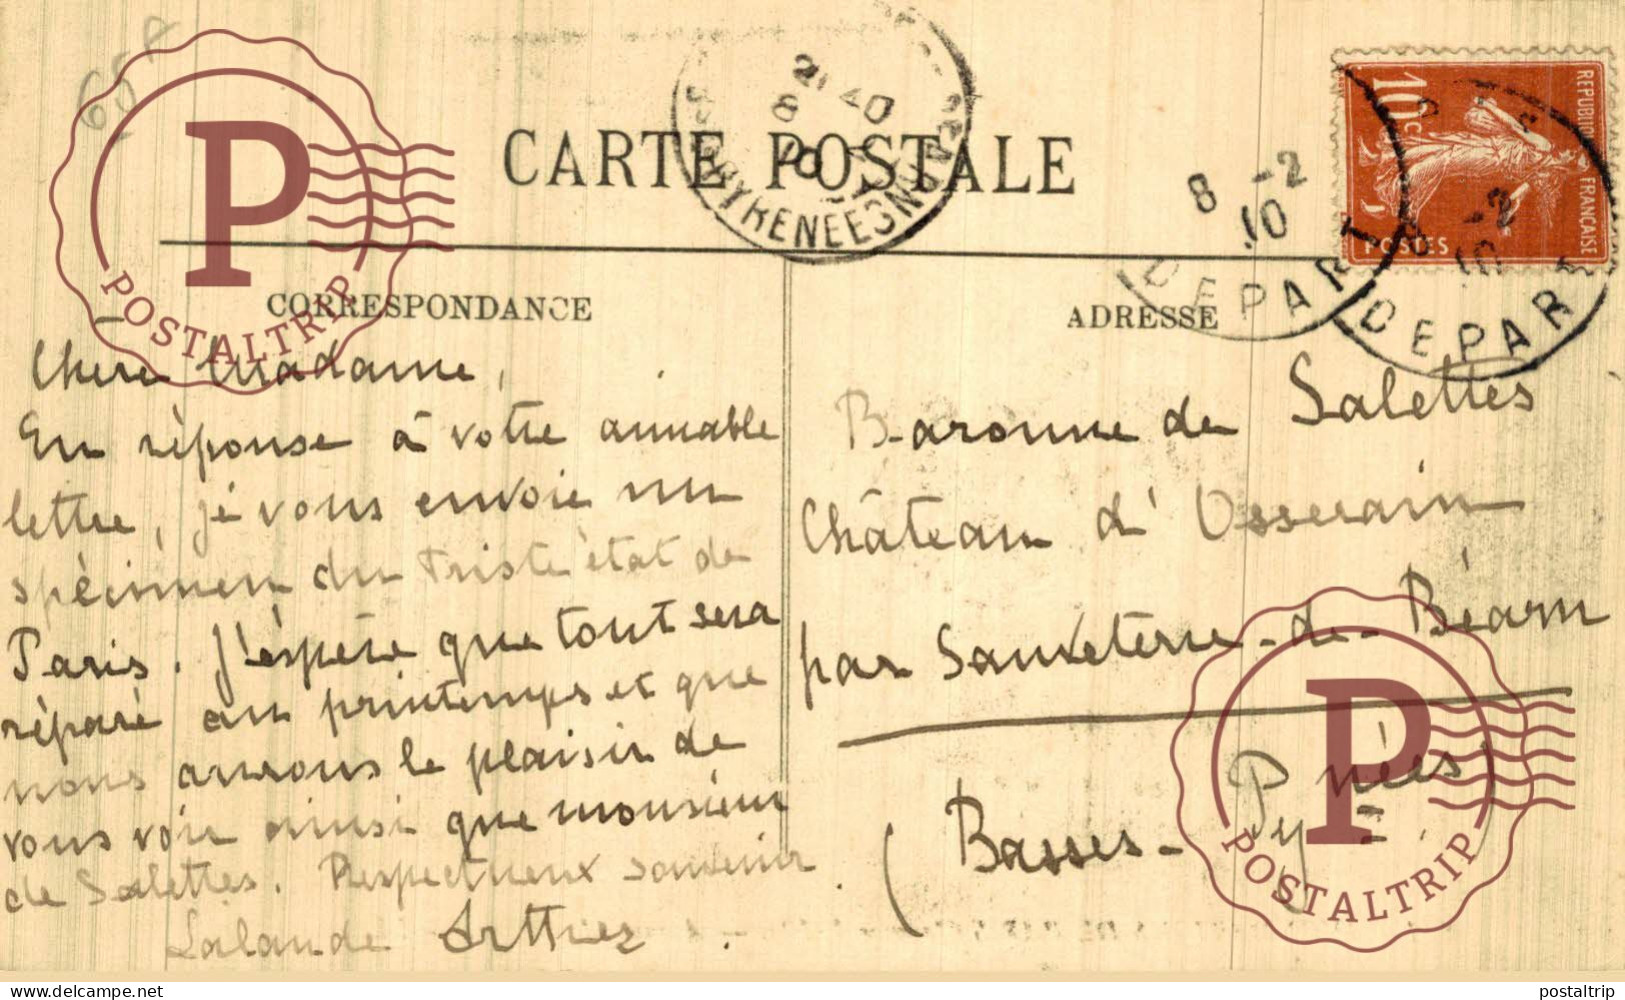 CARTE POSTALE
CORRESPONDANCE
ADRESSE
REPUBLIQUE FRANCAISE
10c
POSTES
8 -2
10
DEPART
8 -2
10
DEPART
PYRENEES
Chere Madame,
En réponse à votre aimable
lettre, je vous envoie un
spécimen du triste état de
Paris. J'espère que tout sera
réparé au printemps et que
nous aurons le plaisir de
vous voir ainsi que monsieur
de Salettes. Respectueux souvenir.
Lalande Arthez
Baronne de Salettes
Château d'Osserain
par Sauveterre-de-Béarn
(Basses-Pyrénées
P
POSTALTRIP
P
POSTALTRIP
www.delcampe.net
postaltrip